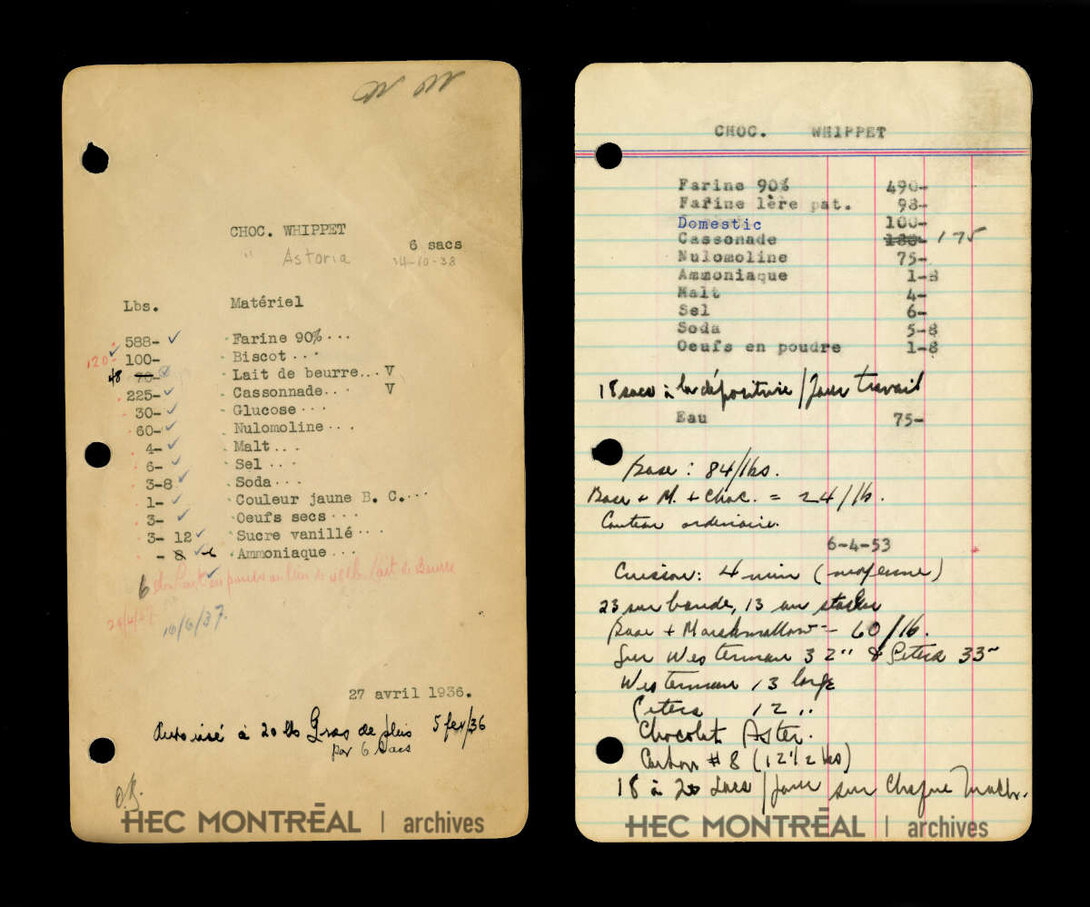 CHOC. WHIPPET
" Astoria
6 sacs
24-10-38
Lbs. Matériel
588- Farine 90%...
120- 100- Biscot...
48 70- Lait de beurre... V
225- Cassonnade... V
30- Glucose...
60- Nulomoline...
4- Malt...
6- Sel...
3-8 Soda...
1- Couleur jaune B. C....
3- Oeufs secs...
3- 12 Sucre vanillé...
- 8 Ammoniaque...
6 lait en poudre au lieu de lait de Beurre
10/6/37.
27 avril 1936.
Autorisé à 20 lb Gras de plus 5 fev/36
par 6 Sacs
HEC MONTRÉAL | archives
CHOC. WHIPPET
Farine 90% 490-
Farine 1ère pat. 98-
Domestic 100-
Cassonade 175
Nulomoline 75-
Ammoniaque 1-8
Malt 4-
Sel 6-
Soda 5-8
Oeufs en poudre 1-8
18 sacs à la dépositrice / Jour travail
Eau 75-
Base : 84/lbs.
Base + M. + Choc. = 24/lb.
Couteau ordinaire.
6-4-53
Cuisson: 4 min (moyenne)
23 sur bande, 13 au stacker
Base + Marshmallow = 60/lb.
Sur Westerman 32" & Peters 33"
Westerman 13 large
Peters 12 "
Chocolat Aster.
Carton # 8 (12 1/2 lbs)
18 à 20 Sacs / Jour sur Chaque
HEC MONTRÉAL | archives